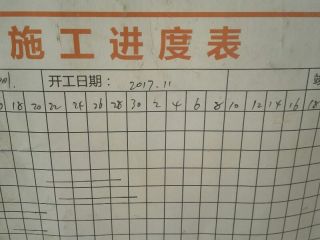 施工进度表
开工日期： 2017.11
18 20 22 24 26 28 30 2 4 6 8 10 12 14 16 18